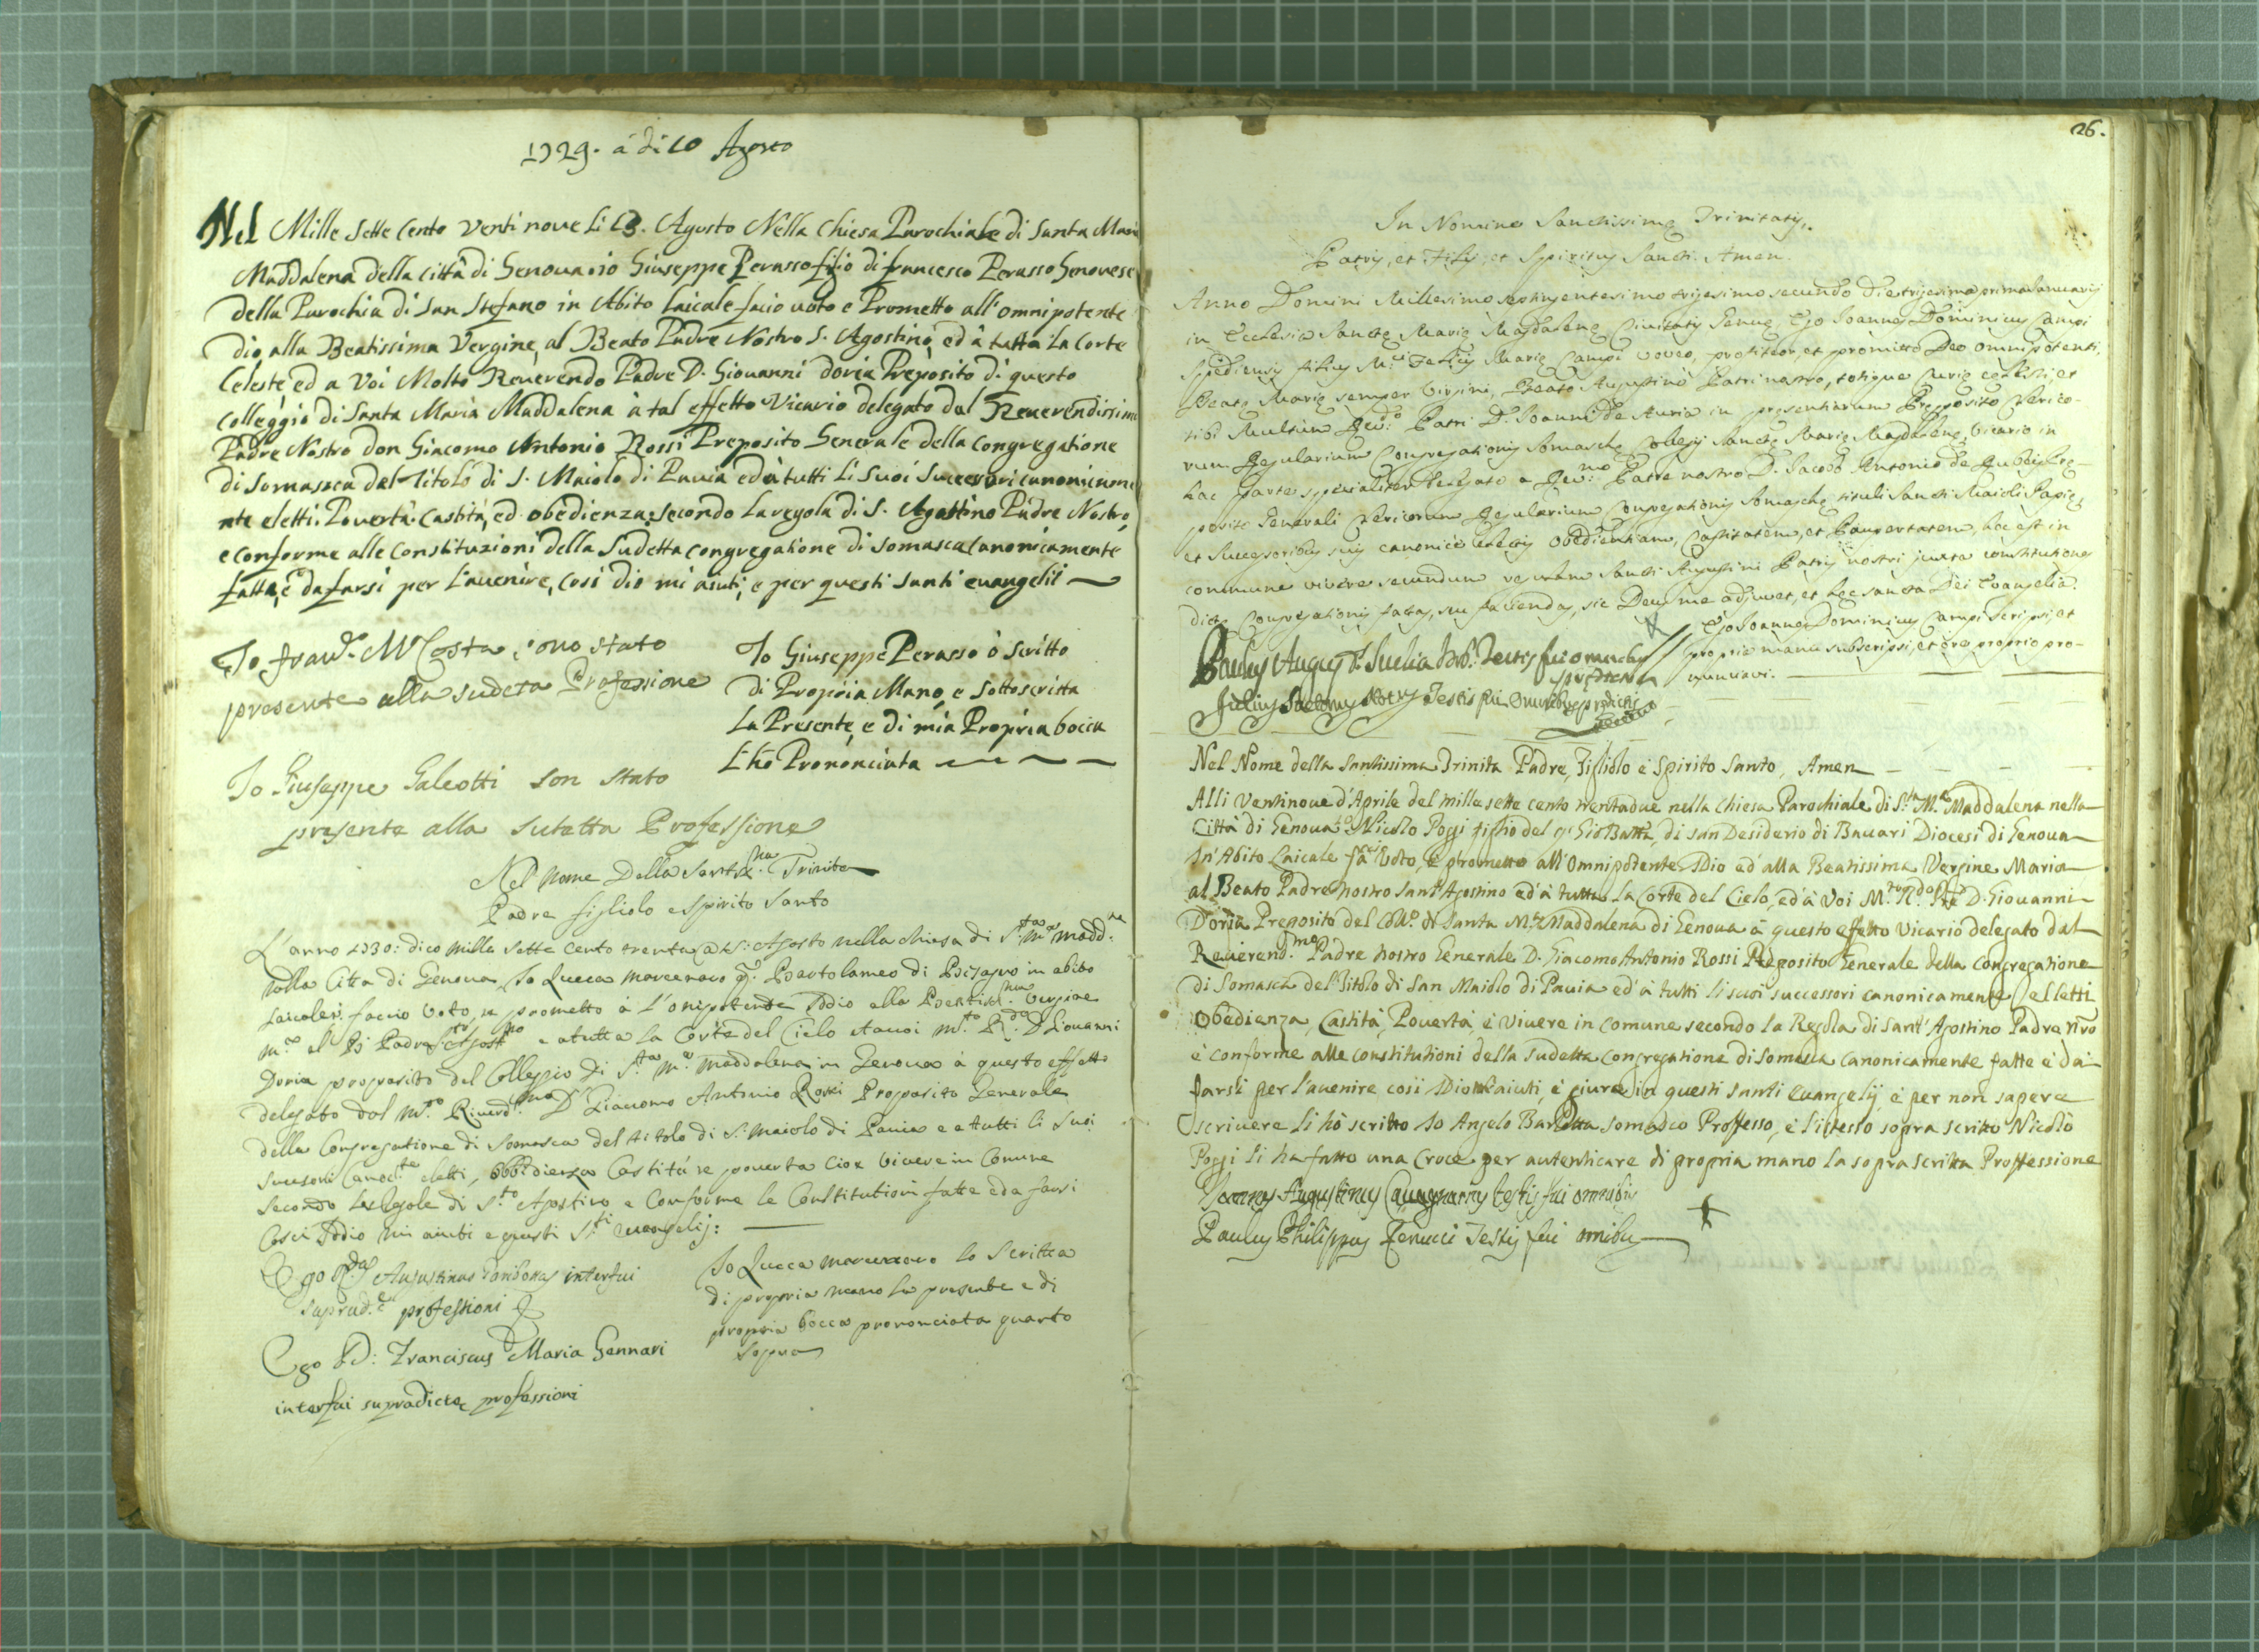 1729. à di 10 Agosto
Nel Mille sette cento venti nove li 13. Agosto Nella Chiesa Parochiale di Santa Maria
Maddalena della Città di Genova io Giuseppe Perasso figlio di francesco Perasso Genovese
della Parochia di San Stefano in Abito Laicale facio uoto e Prometto all'omnipotente
dio, alla Beatissima Vergine, al Beato Padre Nostro S. Agostino, ed à tutta La Corte
Celeste, ed a Voi Molto Reuerendo Padre D. Giovanni doria Preposito di questo
Colleggio di Santa Maria Maddalena à tal effetto Vicario delegato dal Reuerendissimo
Padre Nostro don Giacomo Antonio Rossi Preposito Generale della Congregatione
di Somasca del Titolo di S. Maiolo di Pavia ed à tutti Li Suoi Successori canonicame
nte eletti. Pouertà. Castità, ed obedienza. Secondo La regola di S. Agostino Padre Nostro,
e conforme alle Constituzioni della Sudetta congregatione di somasca Canonicamente
fatte, e da farsi per L'auenire, Cosi dio mi aiuti, e per questi santi euangelii
Io fran.co M.a Costa sono stato
presente alla sudeta Professione
Io Giuseppe Perasso ò Scritto
di Propria Mano, e Sottoscritta
La Presente, e di mia Propria bocca
L'hò Prononciata
Io Giuseppe Galeotti son stato
presente alla sudetta Professione
Nel nome Della Santis.ma Trinita
Padre figliolo e Spirito Santo
L'anno 1730: dico mille sette cento trenta a Agosto nella chiesa di S.ta M.a Madd.na
nella Citta di Genova, Io Lucca Marcenaro q. Bartolameo di in abito
Laicale faccio voto, e prometto à L'onipotente Iddio alla Beatis.ma Vergine
M.a al B. Padre S.to Agost.no e a tutta la Corte del Cielo et auoi M.to R.do D Giouanni
Doria preposito del Colleggio di S.ta M.a Maddalena in Genova à questo effetto
delegato dal M.to Riuerd.mo D Giacomo Antonio Rossi Preposito Generale
della Congregatione di Somasca del titolo di S. Maiolo di Pavia e a tutti li Suoi
Sucesori Canoc.te eletti, Obbidienza Castità, e pouerta Cioe Vivere in Comune
Secondo La Regole di S.to Agostino e Conforme le Constitutioni fatte e da farsi
Cosi Iddio mi aiuti e questi S.ti euangelij:
Ego Augustinus interfui
suprad.e professioni
Io Lucca Marcenaro lo Scritta
di propria mano la presente e di
propria bocca prononciata quanto
Sopra
Ego D: Franciscus Maria Gennari
interfui supradictæ professioni
26.
In Nomine Sanctissimę Trinitatis.
Patris, et Filij, et Spiritus Sancti. Amen.
Anno Domini Millesimo septingentesimo trigesimo secundo Die trigesima prima Ianuarij
in Ecclesia Sanctę Marię Magdalenę Civitatis Genuę, Ego Ioannes Dominicus Campi
Spediensis filius M. Felicis Marię Campi voveo, profiteor, et promitto Deo omnipotenti,
Beatę Marię semper Virgini, Beato Augustino Patri nostro, totique Curię cęlesti, et
tibi Multùm Rev.do Patri D. Ioanni De Auria in presentiarum Pręposito Clerico-
rum Regularium Congregationis Somaschę Collegij Sanctę Marię Magdalenę, Vicario in
hac parte specialiter delegato a Rev.mo Patre nostro D. Iacobo Antonio de Rubeis Pre-
posito Generali Clericorum Regularium Congregationis Somaschę tituli Sancti Maioli Papię,
et Successoribus suis canonicè electis Obedientiam, Castitatem, et Paupertatem, hoc est in
commune vivere secundum regulam Sancti Augustini Patris nostri juxta constitutiones
dictę Congregationis factas, seu faciendas, sic Deus me adjuvet, et hęc sancta Dei Evangelia.
Ego Ioannes Dominicus Campi scripsi, et
propria manu subscripsi, et ore proprio pro-
nunciavi.
Testis fui Omnibus prędictis
Nel Nome della Santissima Trinita Padre, Figliolo è Spirito Santo, Amen
Alli Ventinoue d'Aprile del mille sette cento trentadue nella Chiesa Parochiale di S.ta M.a Maddalena nella
Città di Genoua Io Nicolo Poggi figlio del q. Gio Batta, di san Desiderio di Bauari Diocesi di Genoua
In Abito Laicale fà Voto, è promette all'Omnipotente Dio ed'alla Beatissima Vergine Maria
al Beato Padre nostro Sant'Agostino ed'à tutta la Corte del Cielo, ed'à Voi M.to R.do P're D. Giouanni
D'oria Preposito del Coll.o di Santa M.a Maddalena di Genoua à questo effetto Vicario delegato dal
Reuerend.mo Padre nostro Generale D. Giacomo Antonio Rossi Preposito Generale della Congregatione
di Somasca del Titolo di San Maiolo di Pauia ed'à tutti li suoi successori canonicamente elletti
Obedienza, Castità, Pouertà, è Viuere in comune secondo la Regola di Sant'Agostino Padre n'ro
è conforme alle constitutioni della sudetta Congregatione di Somasca canonicamente fatte è da
farsi per l'auenire cosi Dio l'aiuti, è giura in questi santi Euangelij è per non sapere
scriuere li hò scritto Io Angelo Baretta Somasco Professo, è l'istesso sopra scritto Nicolò
Poggi li ha fatto una Croce per autenticare di propria mano la sopra scritta Proffessione
Ioannes Augustinus testis fui omnibus
Paulus Philippus Ferucci Testis fui omnibus